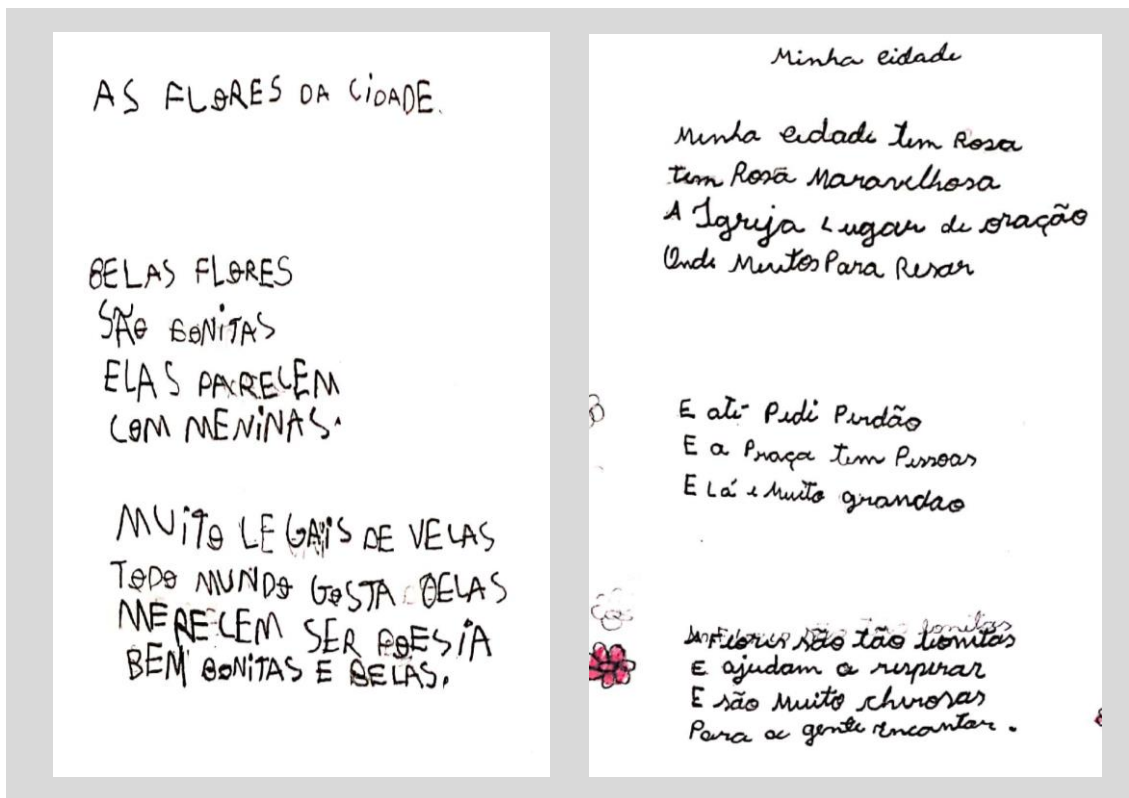 AS FLORES DA CIDADE.
BELAS FLORES
SÃO BONITAS
ELAS PARECEM
COM MENINAS.
MUITO LEGAIS DE VELAS
TODO MUNDO GOSTA DELAS
MERECEM SER POESIA
BEM BONITAS E BELAS.
Minha cidade
Minha cidade tem Rosa
tem Rosa Maravilhosa
A Igreja Lugar de oração
Onde Muitos Para Resar
E até Pedi Perdão
E a Praça tem Pessoas
E Lá e Muito grandao
As Flores são tão bonitas
E ajudam a respirar
E são Muito chirosas
Para a gente encantar.